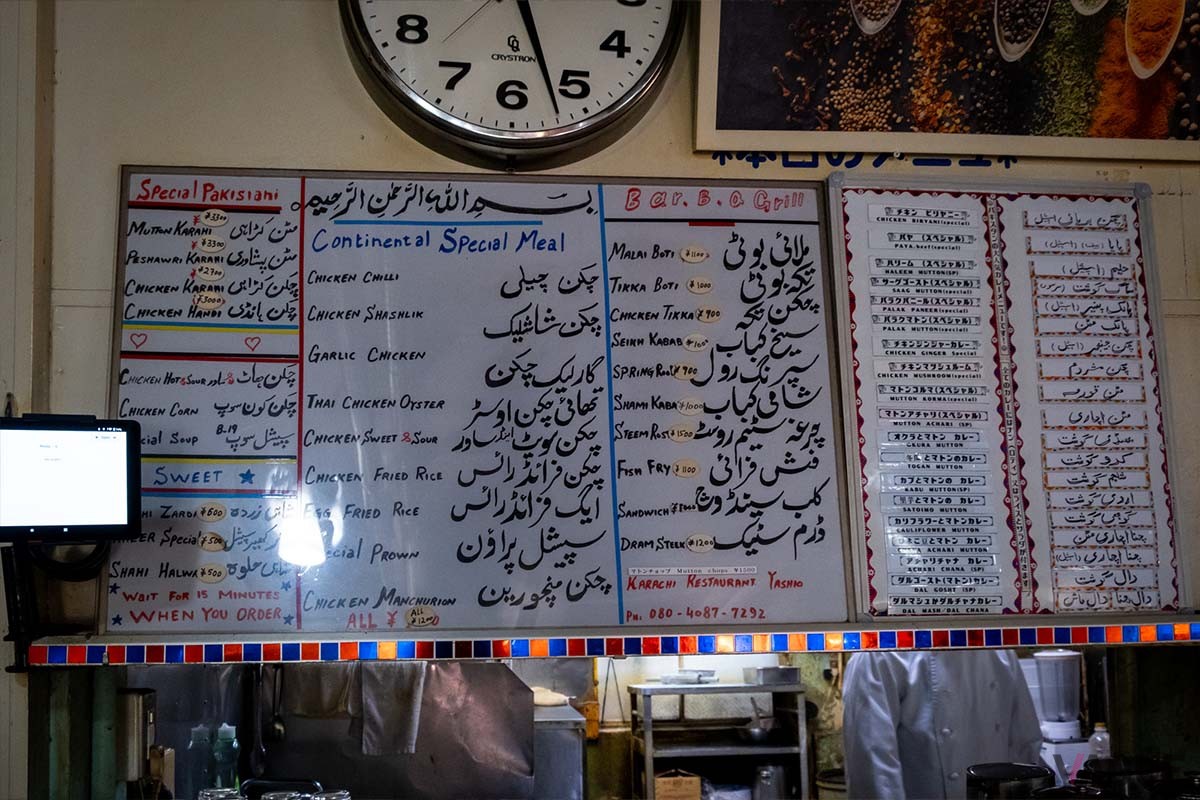 8
7
6
5
4
CRYSTRON
Special Pakistani
Muttan Karahi ¥3300 مٹن کڑاہی
Peshawri Karahi ¥3300 مٹن پشاوری
Chicken Karahi ¥2700 چکن کڑاہی
Chicken Handi ¥3000 چکن ہانڈی
Chicken Hot & Sour
Chicken Corn چکن کون سوپ
Soup B.19 سپیشل سوپ
SWEET
Zarda ¥600 شاہی زردہ
Special ¥500 کھیر سپیشل
Shahi Halwa ¥500 شاہی حلوہ
WAIT FOR 15 MINUTES
WHEN YOU ORDER
بسم اللہ الرَّحمٰنِ الرَّحِیم
Continental Special Meal
Chicken Chilli چکن چیلی
Chicken Shashlik چکن شاشلیک
Garlic Chicken گارلیک چکن
Thai Chicken Oyster تھائی چکن اوسٹر
Chicken Sweet & Sour چکن سویٹ اینڈ ساور
Chicken Fried Rice چکن فرائڈ رائس
Egg Fried Rice ایگ فرائڈ رائس
Special Prown سپیشل پراؤن
Chicken Manchurion چکن منچورین
ALL ¥ ALL ¥1200
Bar. B. Q Grill
Malai Boti ¥1100 ملائی بوٹی
Tikka Boti ¥1000 تکہ بوٹی
Chicken Tikka ¥900 چکن تکہ
Seikh Kabab ¥1000 سیخ کباب
Spring Rool ¥900 سپرنگ رول
Shami Kaba ¥1000 شامی کباب
Steem Rost ¥1500 چرغہ سٹیم روسٹ
Fish Fry ¥1100 فش فرائی
Sandwich کلب سینڈوچ
Dram Steek ¥1200 ڈرم سٹیک
マトンチョップ Mutton chops ¥1500
KARACHI RESTAURANT YASHIO
PH: 080-4087-7292
チキン ビリヤニー
CHICKEN BIRYANI(special)
パヤ (スペシャル)
PAYA.beef(special)
ハリーム (スペシャル)
HALEEM MUTTON(SP)
サーグゴースト(スペシャル)
SAAG MUTTON(special)
パラクパニール(スペシャル)
PALAK PANEER(special)
パラクマトン(スペシャル)
PALAK MUTTON(special)
チキンジンジャーカレー
CHICKEN GINGER Special
チキンマッシュルーム
CHICKEN MUSHROOM(special)
マトンコルマ(スペシャル)
MUTTON KORMA(special)
マトンアチャリ(スペシャル)
MUTTON ACHARI (SP)
オクラとマトン カレー
GKURA MUTTON
冬瓜とマトンのカレー
TOGAN MUTTON
カブとマトンの カレー
KABU MUTTON(SP)
里芋とマトンの カレー
SATOIMO MUTTON
カリフラワーとマトンカレー
CAULIFLOWER MUTTON
ひよこ豆とマトン カレー
CHANA ACHARI MUTTON
アシャリチャナ カレー
ACHARI CHANA (SP)
ダルゴースト(マトン)カレー
DAL GOSHT (SP)
ダルマシュかダルチャナカレー
DAL MASH/DAL CHANA
چکن بریانی اسپیشل
حلیم (اسپیشل)
پالک مٹن
چکن مشروم
مٹن قورمہ
مٹن اچاری
کدو گوشت
شلجم گوشت
اروی گوشت
گوبھی گوشت
چنا اچاری (مٹن)
دال گوشت
دال چنا دال ماش